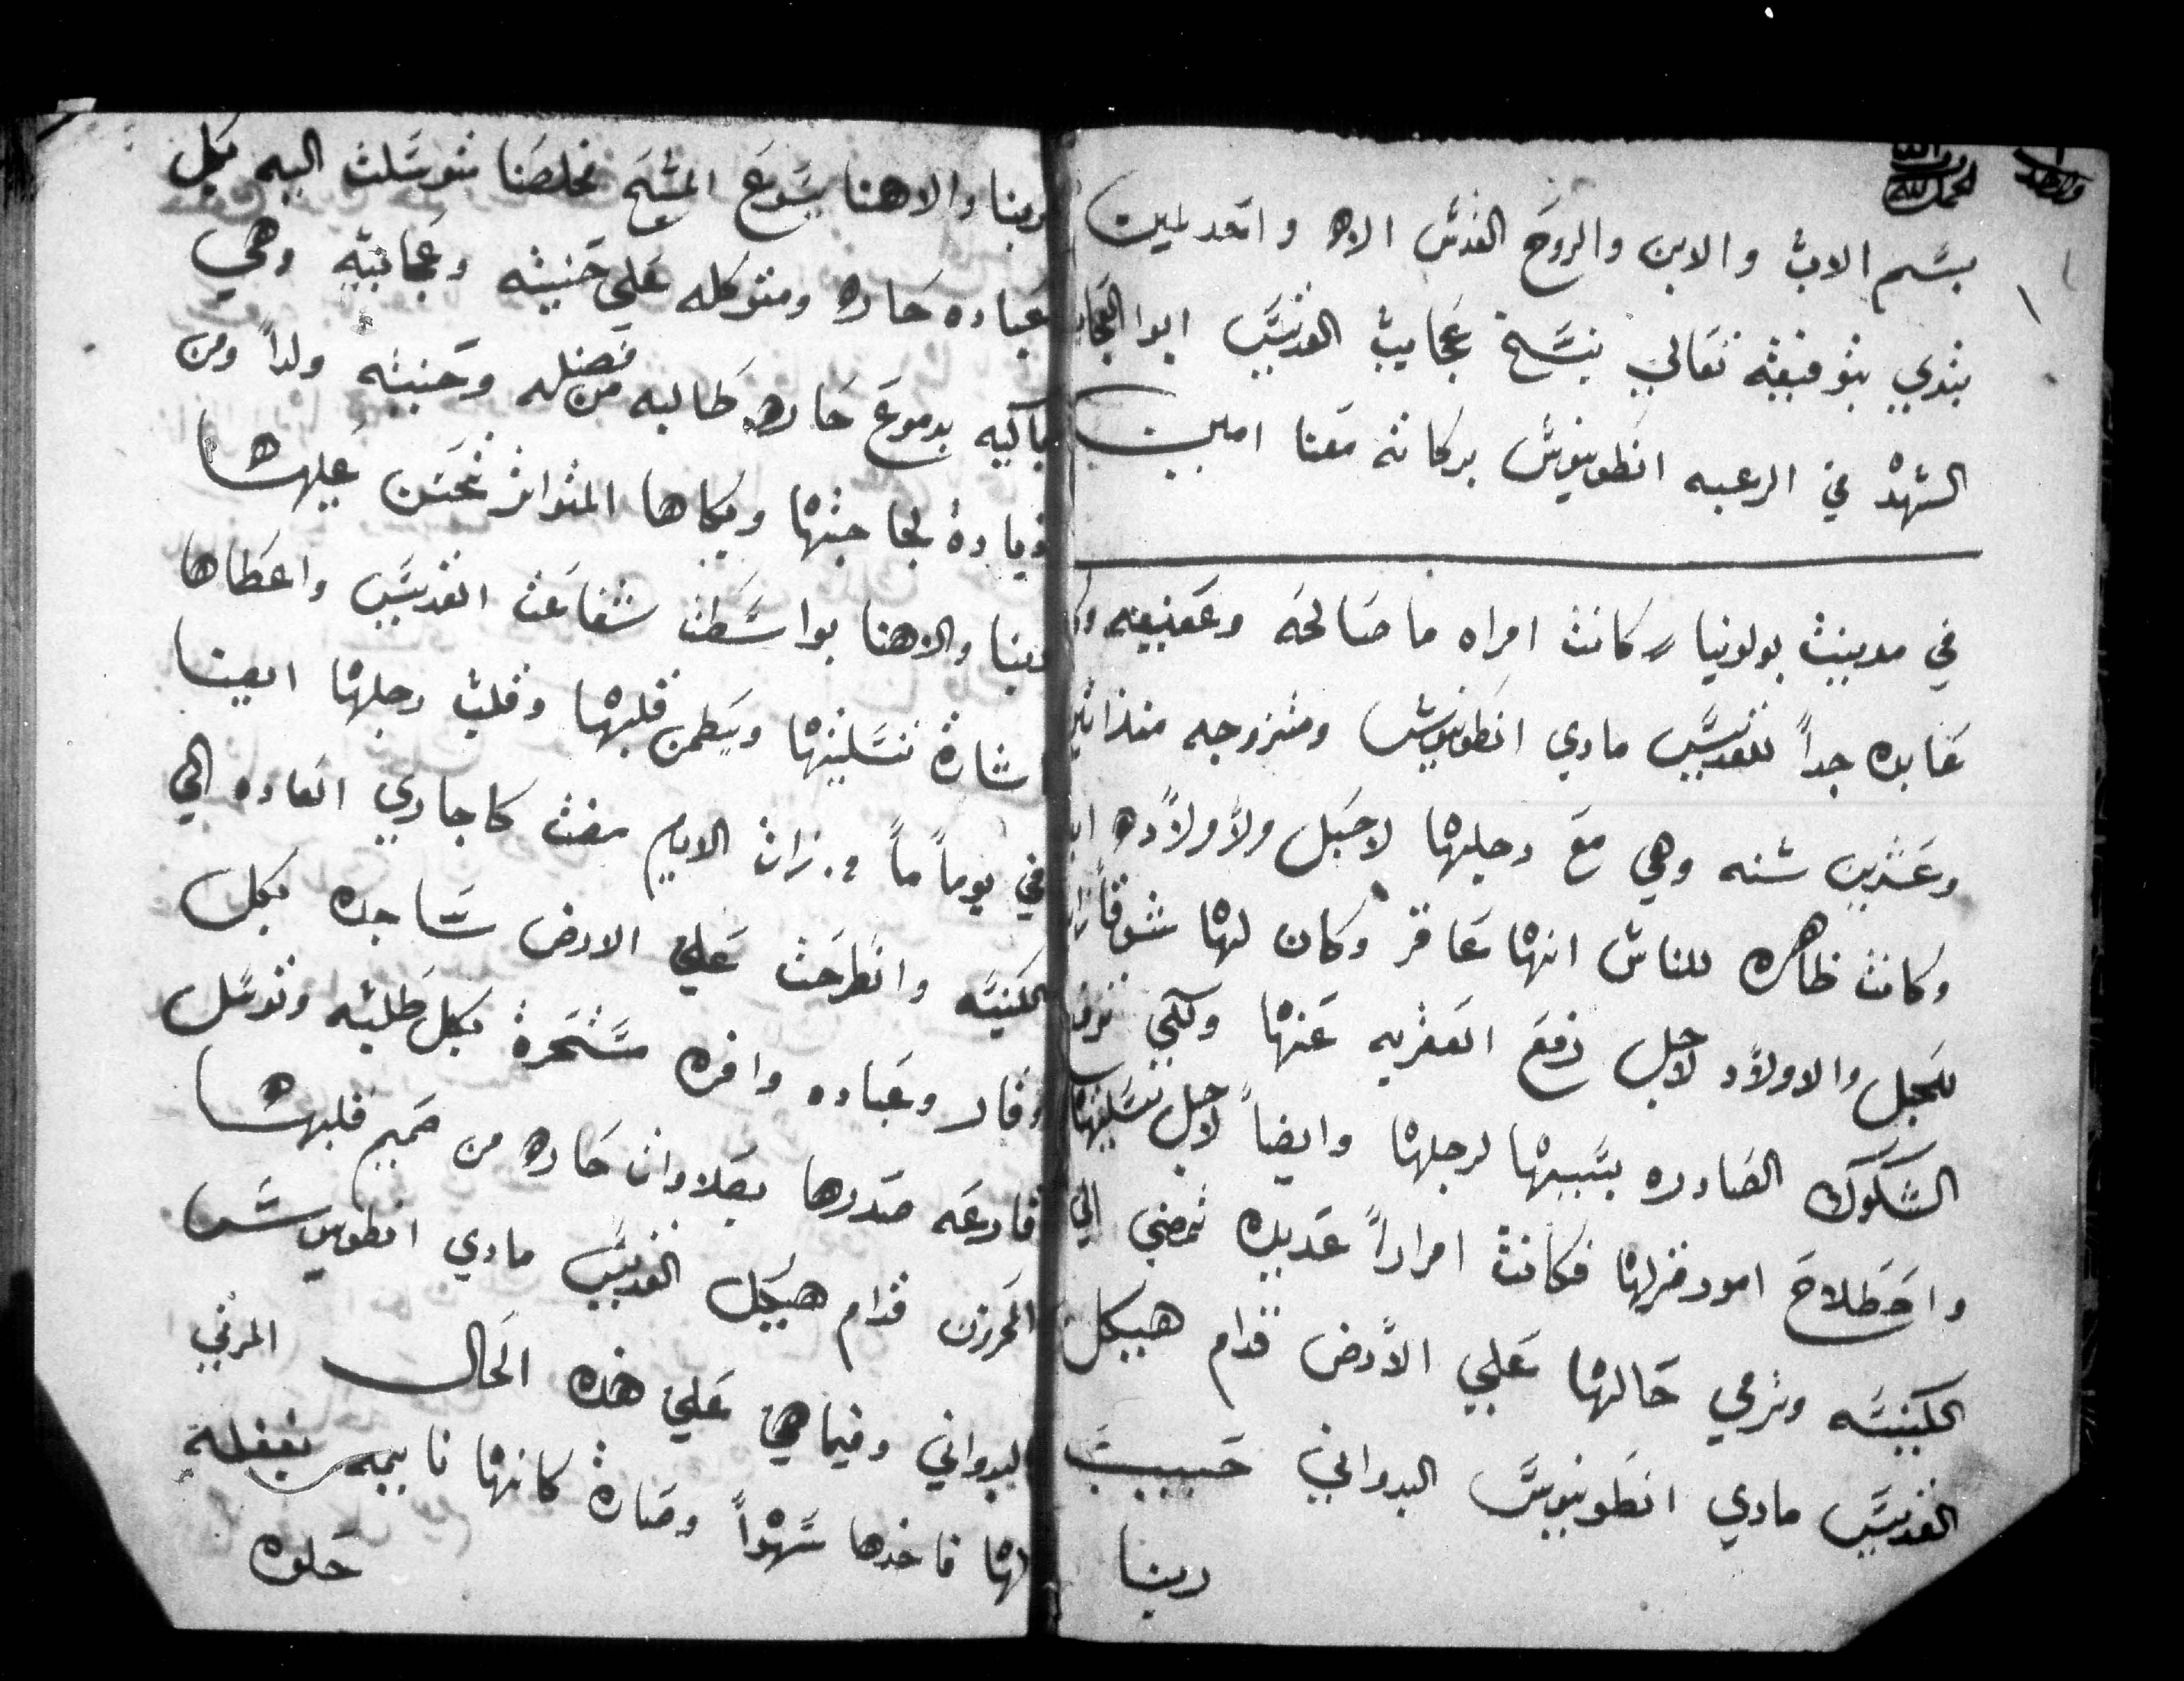 بسم الاب والابن والروح القدس الاه واحد امين
نبتدي بتوفيقه تعالي بنسخ عجايب القديس ابوا العجايب
السهد في الرعبه انطونيوس بركاته معنا امين
في مدينت بولونيا كانت امراه ما صالحه وعفيفه
عابده جداً للقديس ماري انطونيوس ومتزوجه منذ اثنين
وعشرين سنه وهي مع رجلها لا حبل ولا ولاده
وكانت ظاهره للناس انها عاقر وكان لها شوقاً
للحبل والاولاد لاجل رفع العقريه عنها ولكي
الشكوك الصادره بسببها لرجلها وايضاً لاجل تسليتها
واصطلاح امور منزلها فكانت امراراً عديده تمضي الي
الكنيسه وترمي حالها علي الارض قدام هيكل
القديس ماري انطونيوس البدواني حبيب
ربنا
ربنا والاهنا يسوع المسيح مخلصنا متوسلت اليه بكل
عباده حاره ومتوكله علي حنيته وعجايبه وهي
باكيه بدموع حاره طالبه من فضله وحنيته ولداً ومن
زيادة لجاجتها وبكاها المتواتر تحنن عليها
ربنا والاهنا بواسطت شفاعت القديس واعطاها
اشارة تسليتها ويطمن قلبها وقلب رجلها ايضا
في يوماً ماً من زات الايام مضت كاجاري العاده الي
الكنيسه وانطرحت علي الارض ساجده بكل
وقار وعباده وافره مستمرة بكل طلبه وتوسل
قارعه صدرها بصلاوات حاره من صميم قلبها
المحزن قدام هيكل القديس ماري انطونيوس
البدواني وفيما هي علي هذه الحال المرئي
لها فاخذها سهواً وصارة كانها نايمه بغفلة
حلوه